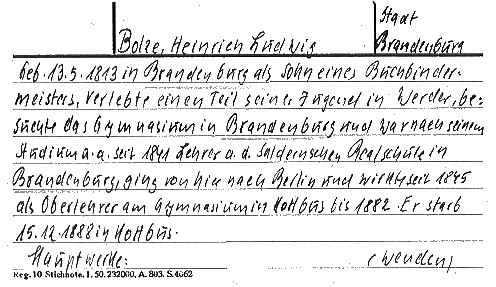 Stadt
Bolze, Heinrich Ludwig Brandenburg
Geb. 13.5.1813 in Brandenburg als Sohn eines Buchbinder-
meisters, verlebte einen Teil seiner Jugend in Werder, be-
suchte das Gymnasium in Brandenburg und war nach seinem
Studium a.a. seit 1841 Lehrer a.d. Saldernschen Realschule in
Brandenburg, ging von hier nach Berlin und wirkte seit 1845
als Oberlehrer am Gymnasium in Kottbus bis 1882. Er starb
15.12.1888 in Kottbus.
Hauptwerke: (wenden)
Reg. 10 Stichnote. I. 50. 232000. A. 803. S. 4662